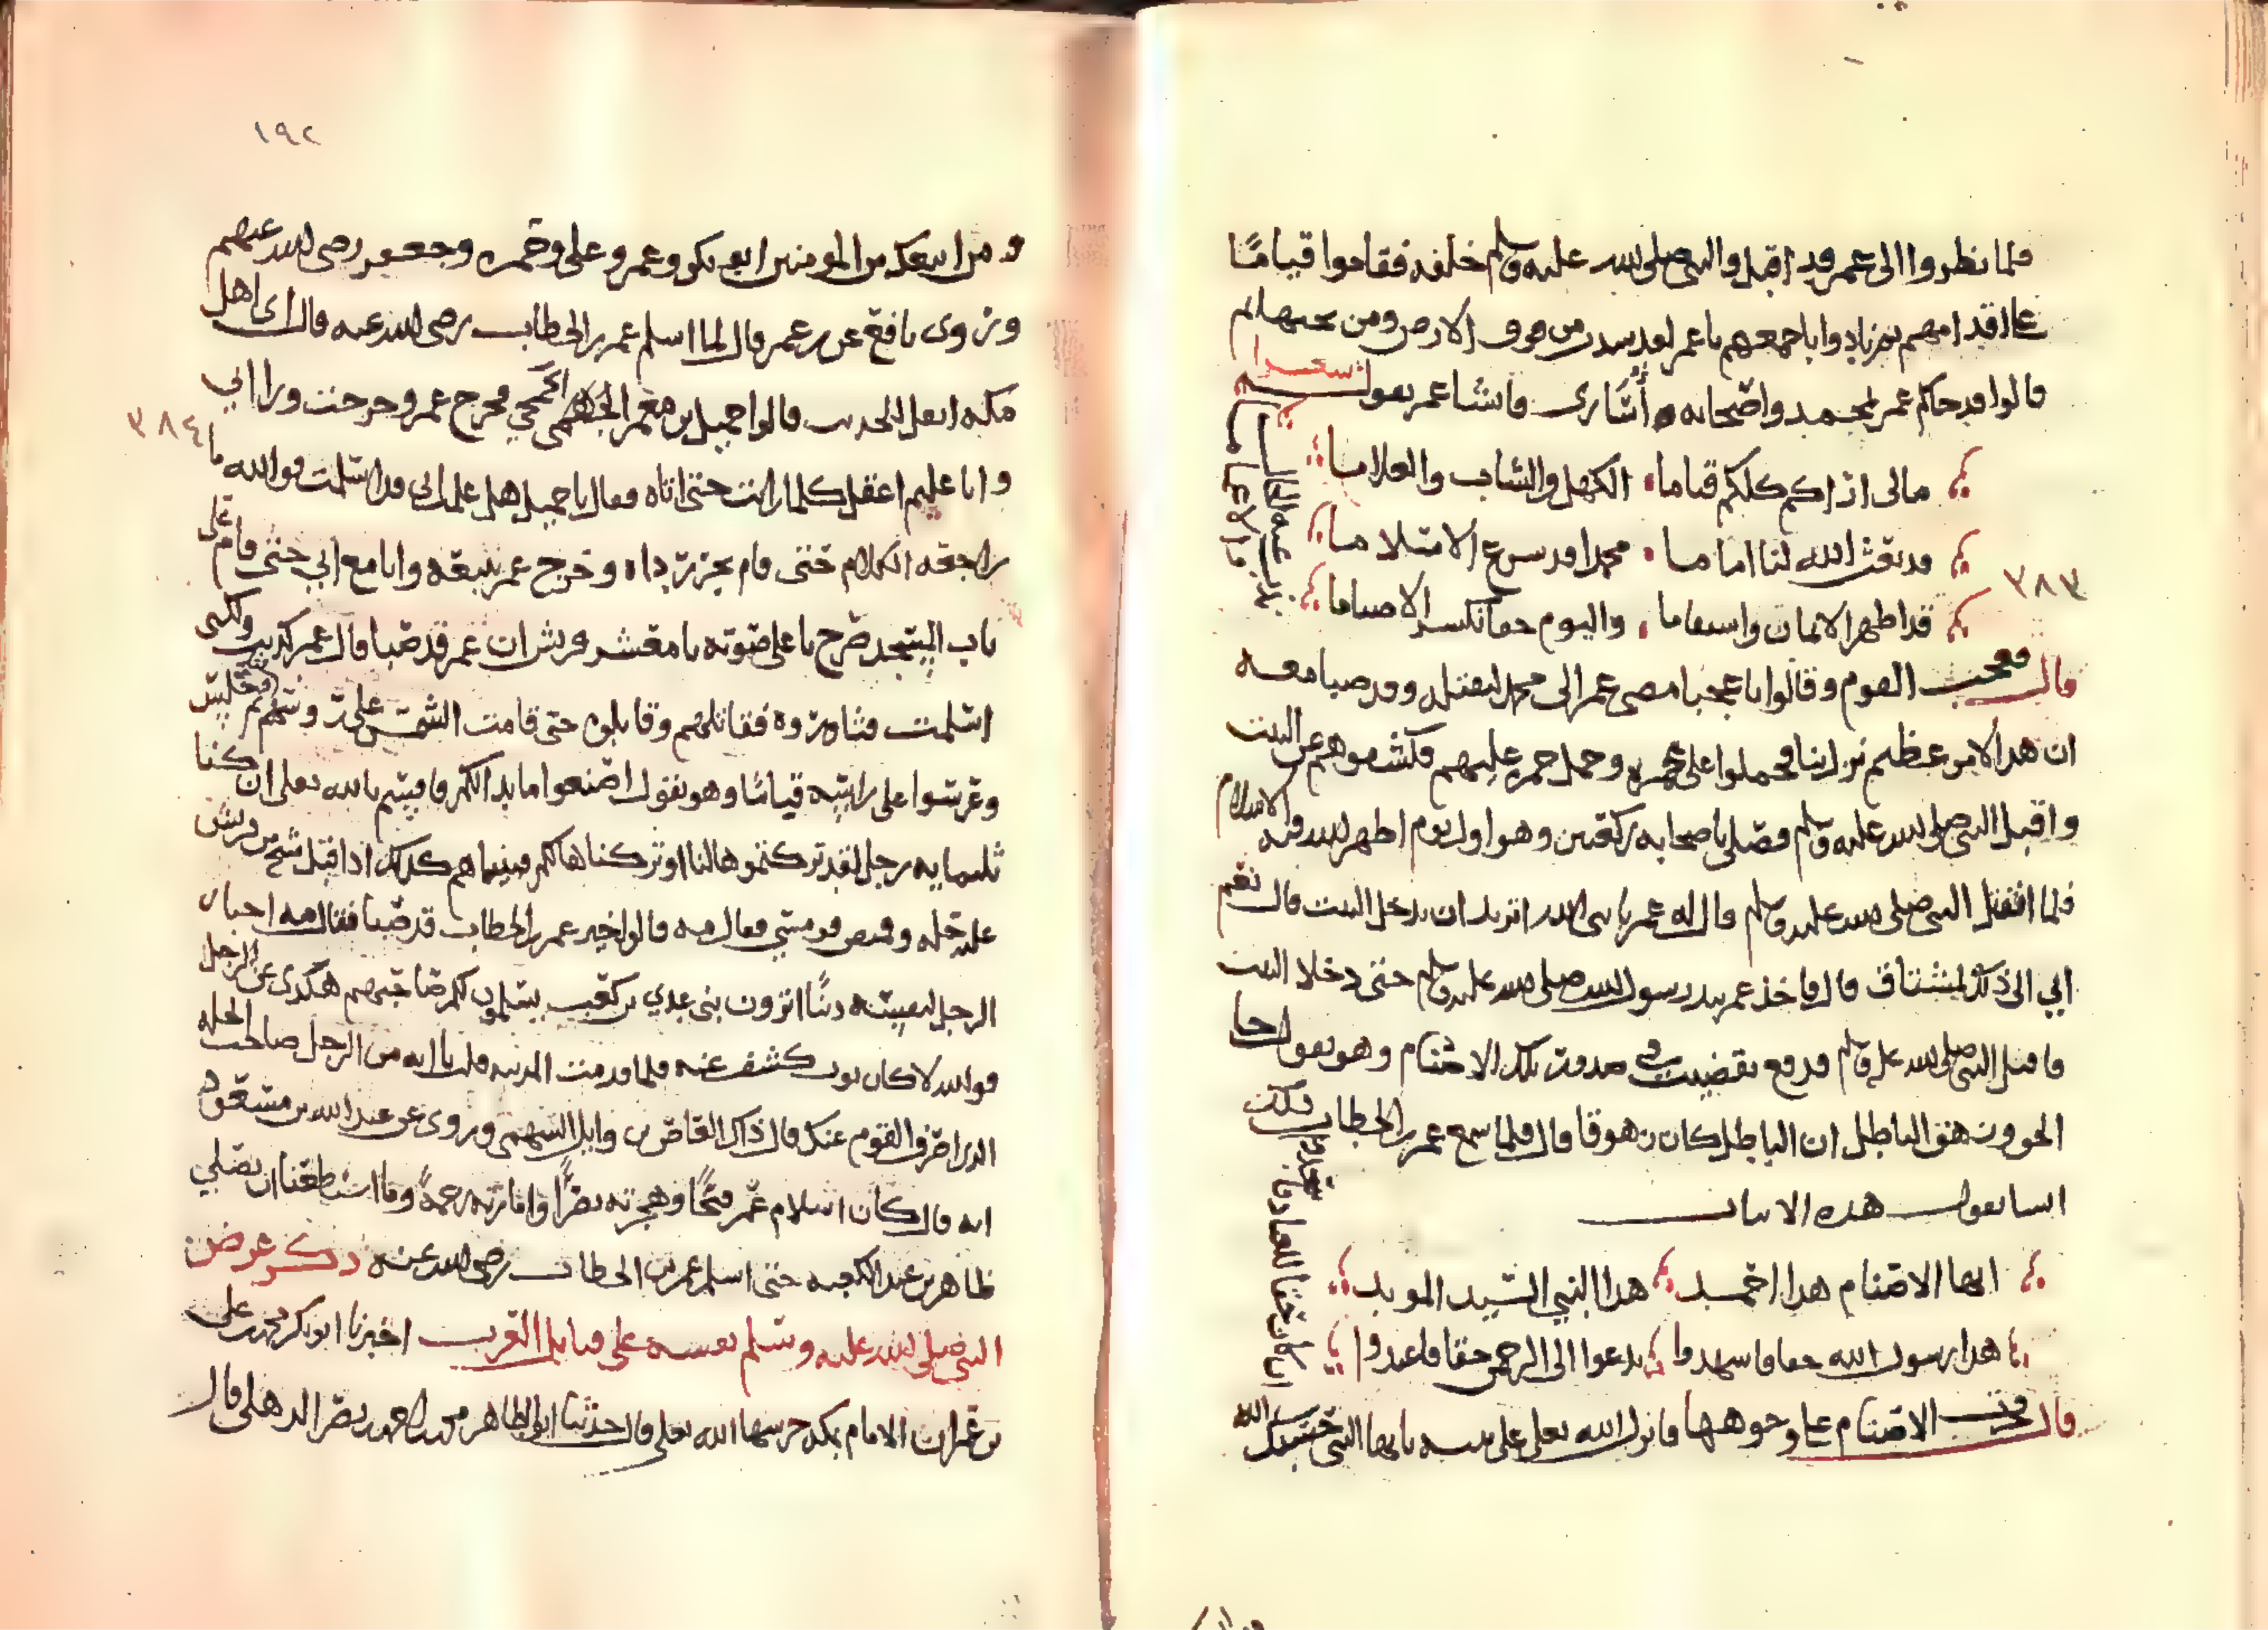 فلما نظروا الى عمر قد اقبل والنبي صلى الله عليه وسلم خلفه فقاموا قياما
على اقدامهم ثم نادوا باجمعهم يا عمر لقد من فوق الارض ومن تحتها
قالوا قد جاكم عمر لمحمد واصحابه اسارى فانشا عمر يقول شعرا
مالي اراكم كلكم قياما الكهل والشاب والغلاما
قد بعث الله لنا اماما محمدا قد شرع الاسلاما
٣٨٣
قد اظهر الايمان واستقاما واليوم حقا نكسر الاصناما
قال فعجب القوم وقالوا يا عجبا مضى عمر الى محمد ليقتله وقد صبا معه
ان هذا لامر عظيم نزل بنا فحملوا على عمر وحمل عمر عليهم فكشفوهم عن البيت
واقبل النبي صلى الله عليه وسلم فصلى باصحابه ركعتين وهو اول يوم اظهر الله فيه الاسلام
فلما انفتل النبي صلى الله عليه وسلم قال له عمر يا نبي الله اتريد ان تدخل البيت قال نعم
اني الى ذلك لمشتاق قال فاخذ عمر بيد رسول الله صلى الله عليه وسلم حتى دخلا البيت
فاقبل النبي صلى الله عليه وسلم يدفع بقضيب في تلك الاصنام وهو يقول جا
الحق وزهق الباطل ان الباطل كان زهوقا قال فلما سمع عمر بن الخطاب ذلك
انشا يقول هذه الابيات
ايها الاصنام هذا احمد هذا النبي السيد المويد
هذا رسول الله حقا فاشهدوا يدعوا الى الرحمن حقا فاعبدوا
ان كان حقا للعباد
قال فخرت الاصنام على وجوهها فانزل الله تعلى على نبيه يا ايها النبي حسبك الله
١٩٢
ومن اتبعك من المومنين ابو بكر وعمر وعلي وحمزه وجعفر رضي الله عنهم
وروى نافع عن بن عمر قال لما اسلم عمر بن الخطاب رضي الله عنه قال اي اهل
مكه انقل للحديث قالوا جميل بن معمر الجمحي فخرج عمر وخرجت ورا ابي
٣٨٤
وانا غليم اعقل كلما رايت حتى اتاه فقال يا جميل هل علمت اني قد اسلمت فوالله ما
راجعه الكلام حتى قام يجر رداه وخرج عمر يتبعه وانا مع ابي حتى قام على
باب المسجد صرخ باعلى صوته يا معشر قريش ان عمر قد صبا قال عمر كذب ولكني
اسلمت فثاوروه فقاتلهم وقاتلوه حتى قامت الشمس على فجلس
وعرشوا على راسه قياما وهو يقول اصنعوا ما بدا لكم فاقسم بالله تعلى ان كنا
ثلثمايه رجل لقد تركتموها لنا او تركناها لكم فبينما هم كذلك اذ اقبل شيخ من قريش
عليه حله وقميص قومسي فقال مه قالوا خير عمر بن الخطاب قد صبا فقال مه اختار
الرجل لنفسه دينا اترون بني عدي بن كعب يسلمون لكم صاحبهم هكذى عن الرجل
فوالله لا كان ثوب كشف عنه فلما قدمت المدينه قلت يا ابه من الرجل صاحب الحله
الذي صرف القوم عنك قال ذاك العاص بن وايل السهمي وروى عن عبد الله بن مسعود
انه قال كان اسلام عمر فتحا وهجرته نصرا وامارته رحمة وما استطعنا ان نصلي
ظاهرين عند الكعبه حتى اسلم عمر بن الخطاب رضي الله عنه ذكر عرض
النبي صلى الله عليه وسلم نفسه على قبايل العرب اخبرنا ابو بكر محمد بن علي
بن عمران الامام بمكه حرسها الله تعلى قال حدثنا ابو الطاهر محمد بن احمد بن نصر الذهلي قال